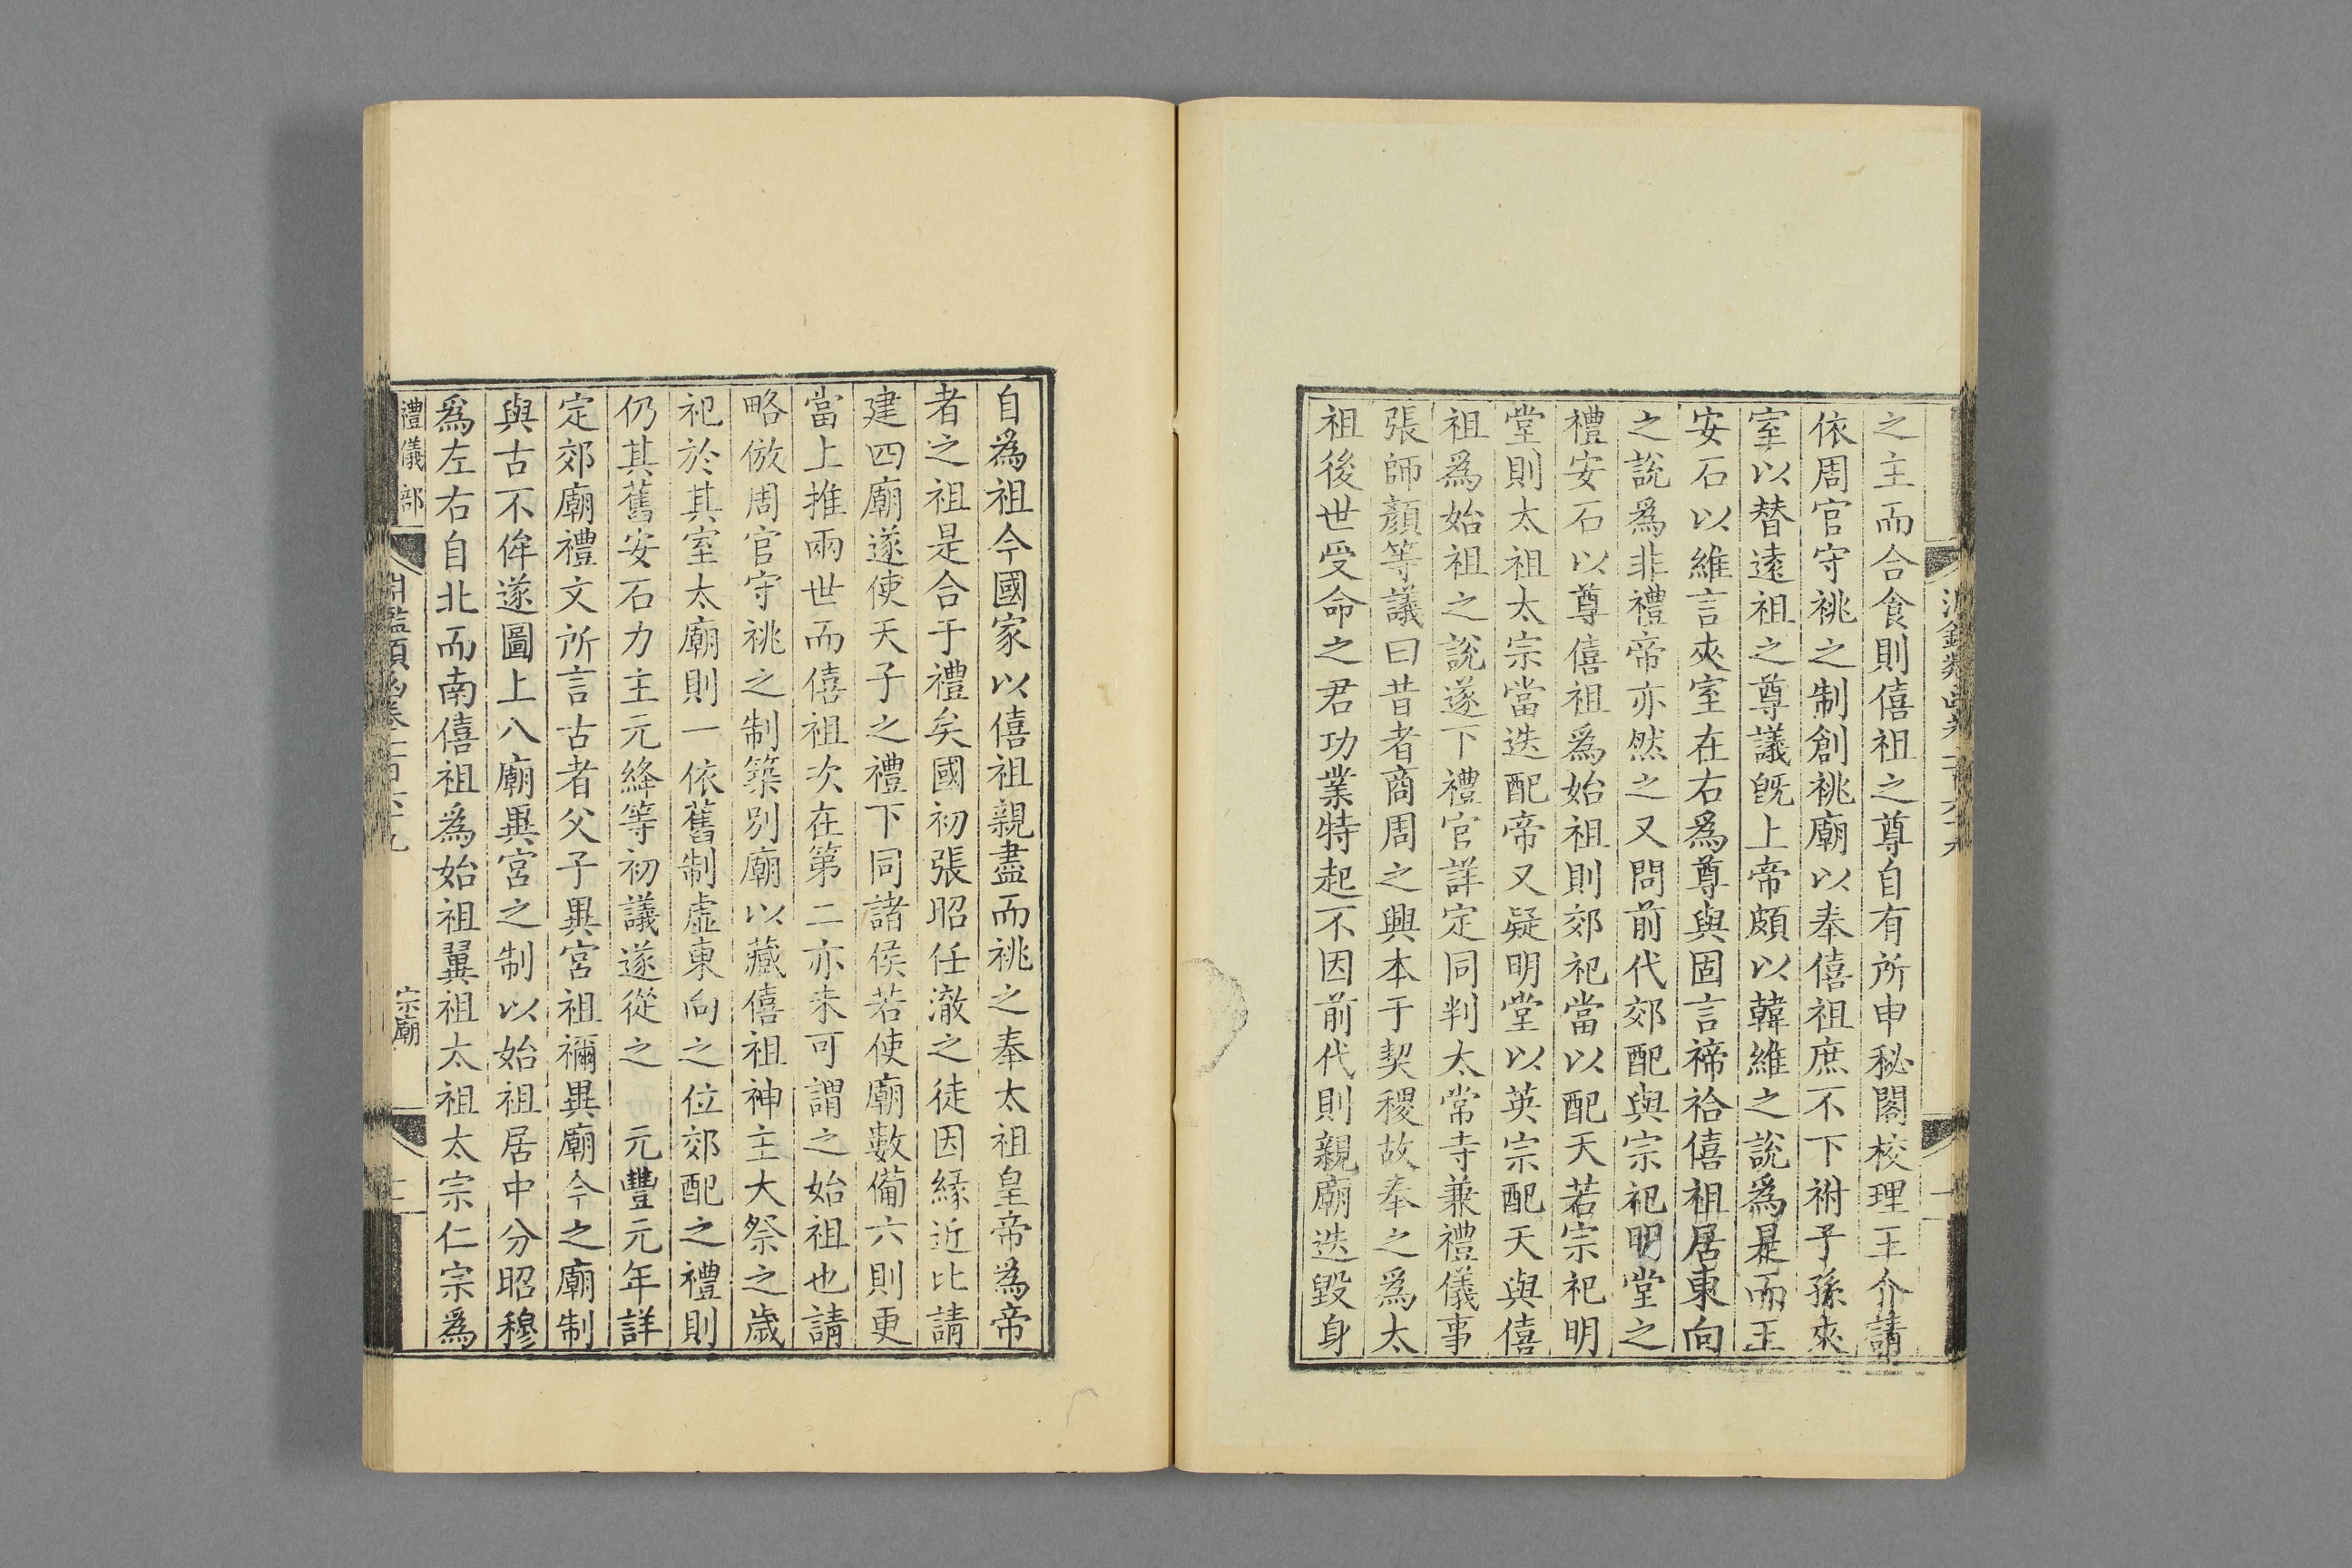 之主而合食則僖祖之尊自有所申秘閣校理王介請
依周官守祧之制創祧廟以奉僖祖庶不下祔子孫夾
室以替逺祖之尊議旣上帝頗以韓維之說爲是而王
安石以維言夾室在右爲尊與固言褅祫僖祖居東向
之說爲非禮帝亦然之又問前代郊配與宗祀明堂之
禮安石以尊僖祖爲始祖則郊祀當以配天若宗祀明
堂則太祖太宗當迭配帝又疑明堂以英宗配天與僖
祖爲始祖之說遂下禮官詳定同判太常寺兼禮儀事
張師顏等議曰昔者商周之興本于契稷故奉之爲太
祖後世受命之君功業特起不因前代則親廟迭毀身
自爲祖今國家以僖祖親盡而祧之奉太祖皇帝爲帝
者之祖是合于禮矣國初張昭任澈之徒因緣近比請
建四廟遂使天子之禮下同諸侯若使廟數備六則更
當上推兩世而僖祖次在第二亦未可謂之始祖也請
略倣周官守祧之制築別廟以藏僖祖神主大祭之歲
祀於其室太廟則一依舊制虛東向之位郊配之禮則
仍其舊安石力主元絳等初議遂從之 元豐元年詳
定郊廟禮文所言古者父子異宮祖禰異廟今之廟制
與古不侔遂圖上八廟異宮之制以始祖居中分昭穆
爲左右自北而南僖祖爲始祖翼祖太祖太宗仁宗爲
禮儀部
宗廟